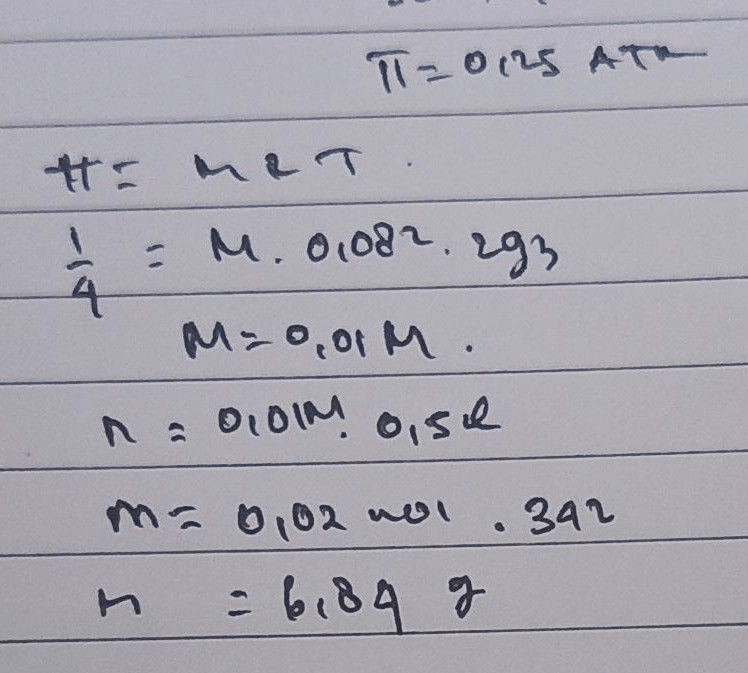 π = 0,25 ATM
π = M R T .
1/4 = M . 0,082 . 293
M = 0,01 M .
n = 0,01 M . 0,5 l
m = 0,02 mol . 342
m = 6,84 g